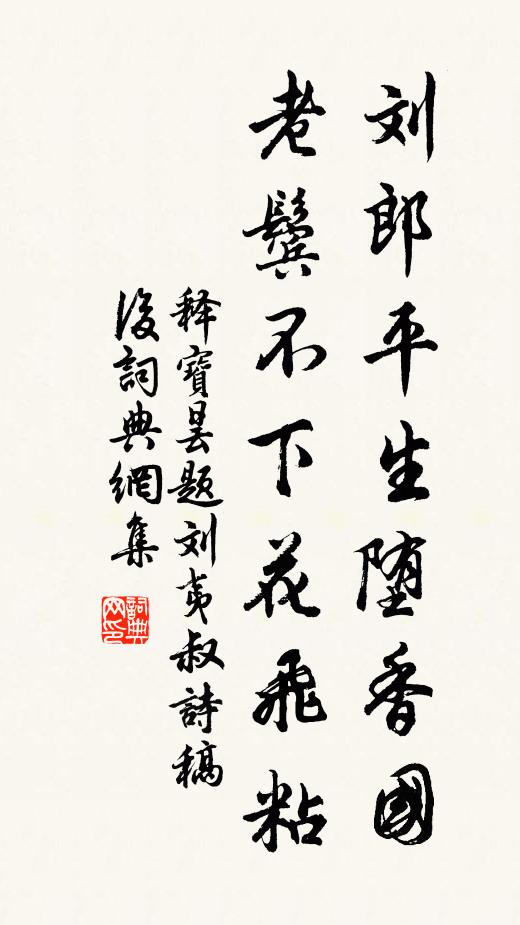 刘郎平生堕香國
老鬓不下花飛粘
释寶昙题刘夷叔詩稿
後詞典網集
詞典网印